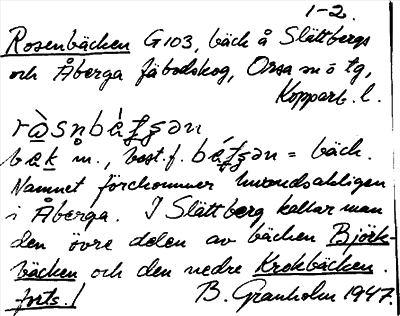 1-2.
Rosenbäcken G103, bäck å Slättbergs
och Åberga fäbodskog, Orsa sn ö tg,
Kopparb. l.
rò̱sn̥bȧʈʂən
bäk m., best. f. bȧʈʂən = bäck.
Namnet förekommer huvudsakligen
i Åberga. I Slättberg kallar man
den övre delen av bäcken Björk-
bäcken och den nedre Krokbäcken.
forts./ B. Granholm 1947.